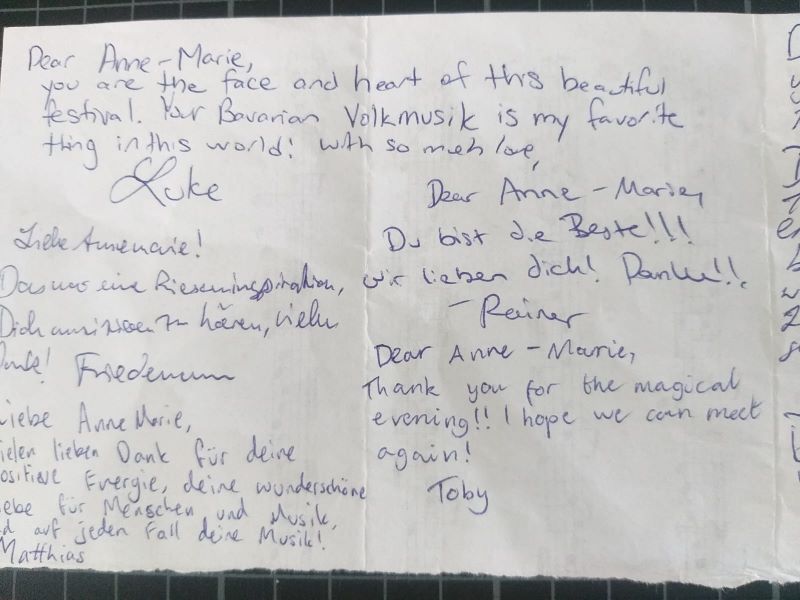 Dear Anne-Marie,
you are the face and heart of this beautiful
festival. Your Bavarian Volkmusik is my favorite
thing in this world! with so much love,
Luke
Dear Anne-Marie,
Du bist die Beste!!!
wir lieben dich! Danke!!.
- Rainer
Liebe Annemarie!
Das war eine Rieseninspiration,
Dich musizieren zu hören, vielen
Dank! Friedemann
Liebe AnneMarie,
vielen lieben Dank für deine
positive Energie, deine wunderschöne
Liebe für Menschen und Musik,
und auf jeden Fall deine Musik!
Matthias
Dear Anne-Marie,
Thank you for the magical
evening!! I hope we can meet
again!
Toby